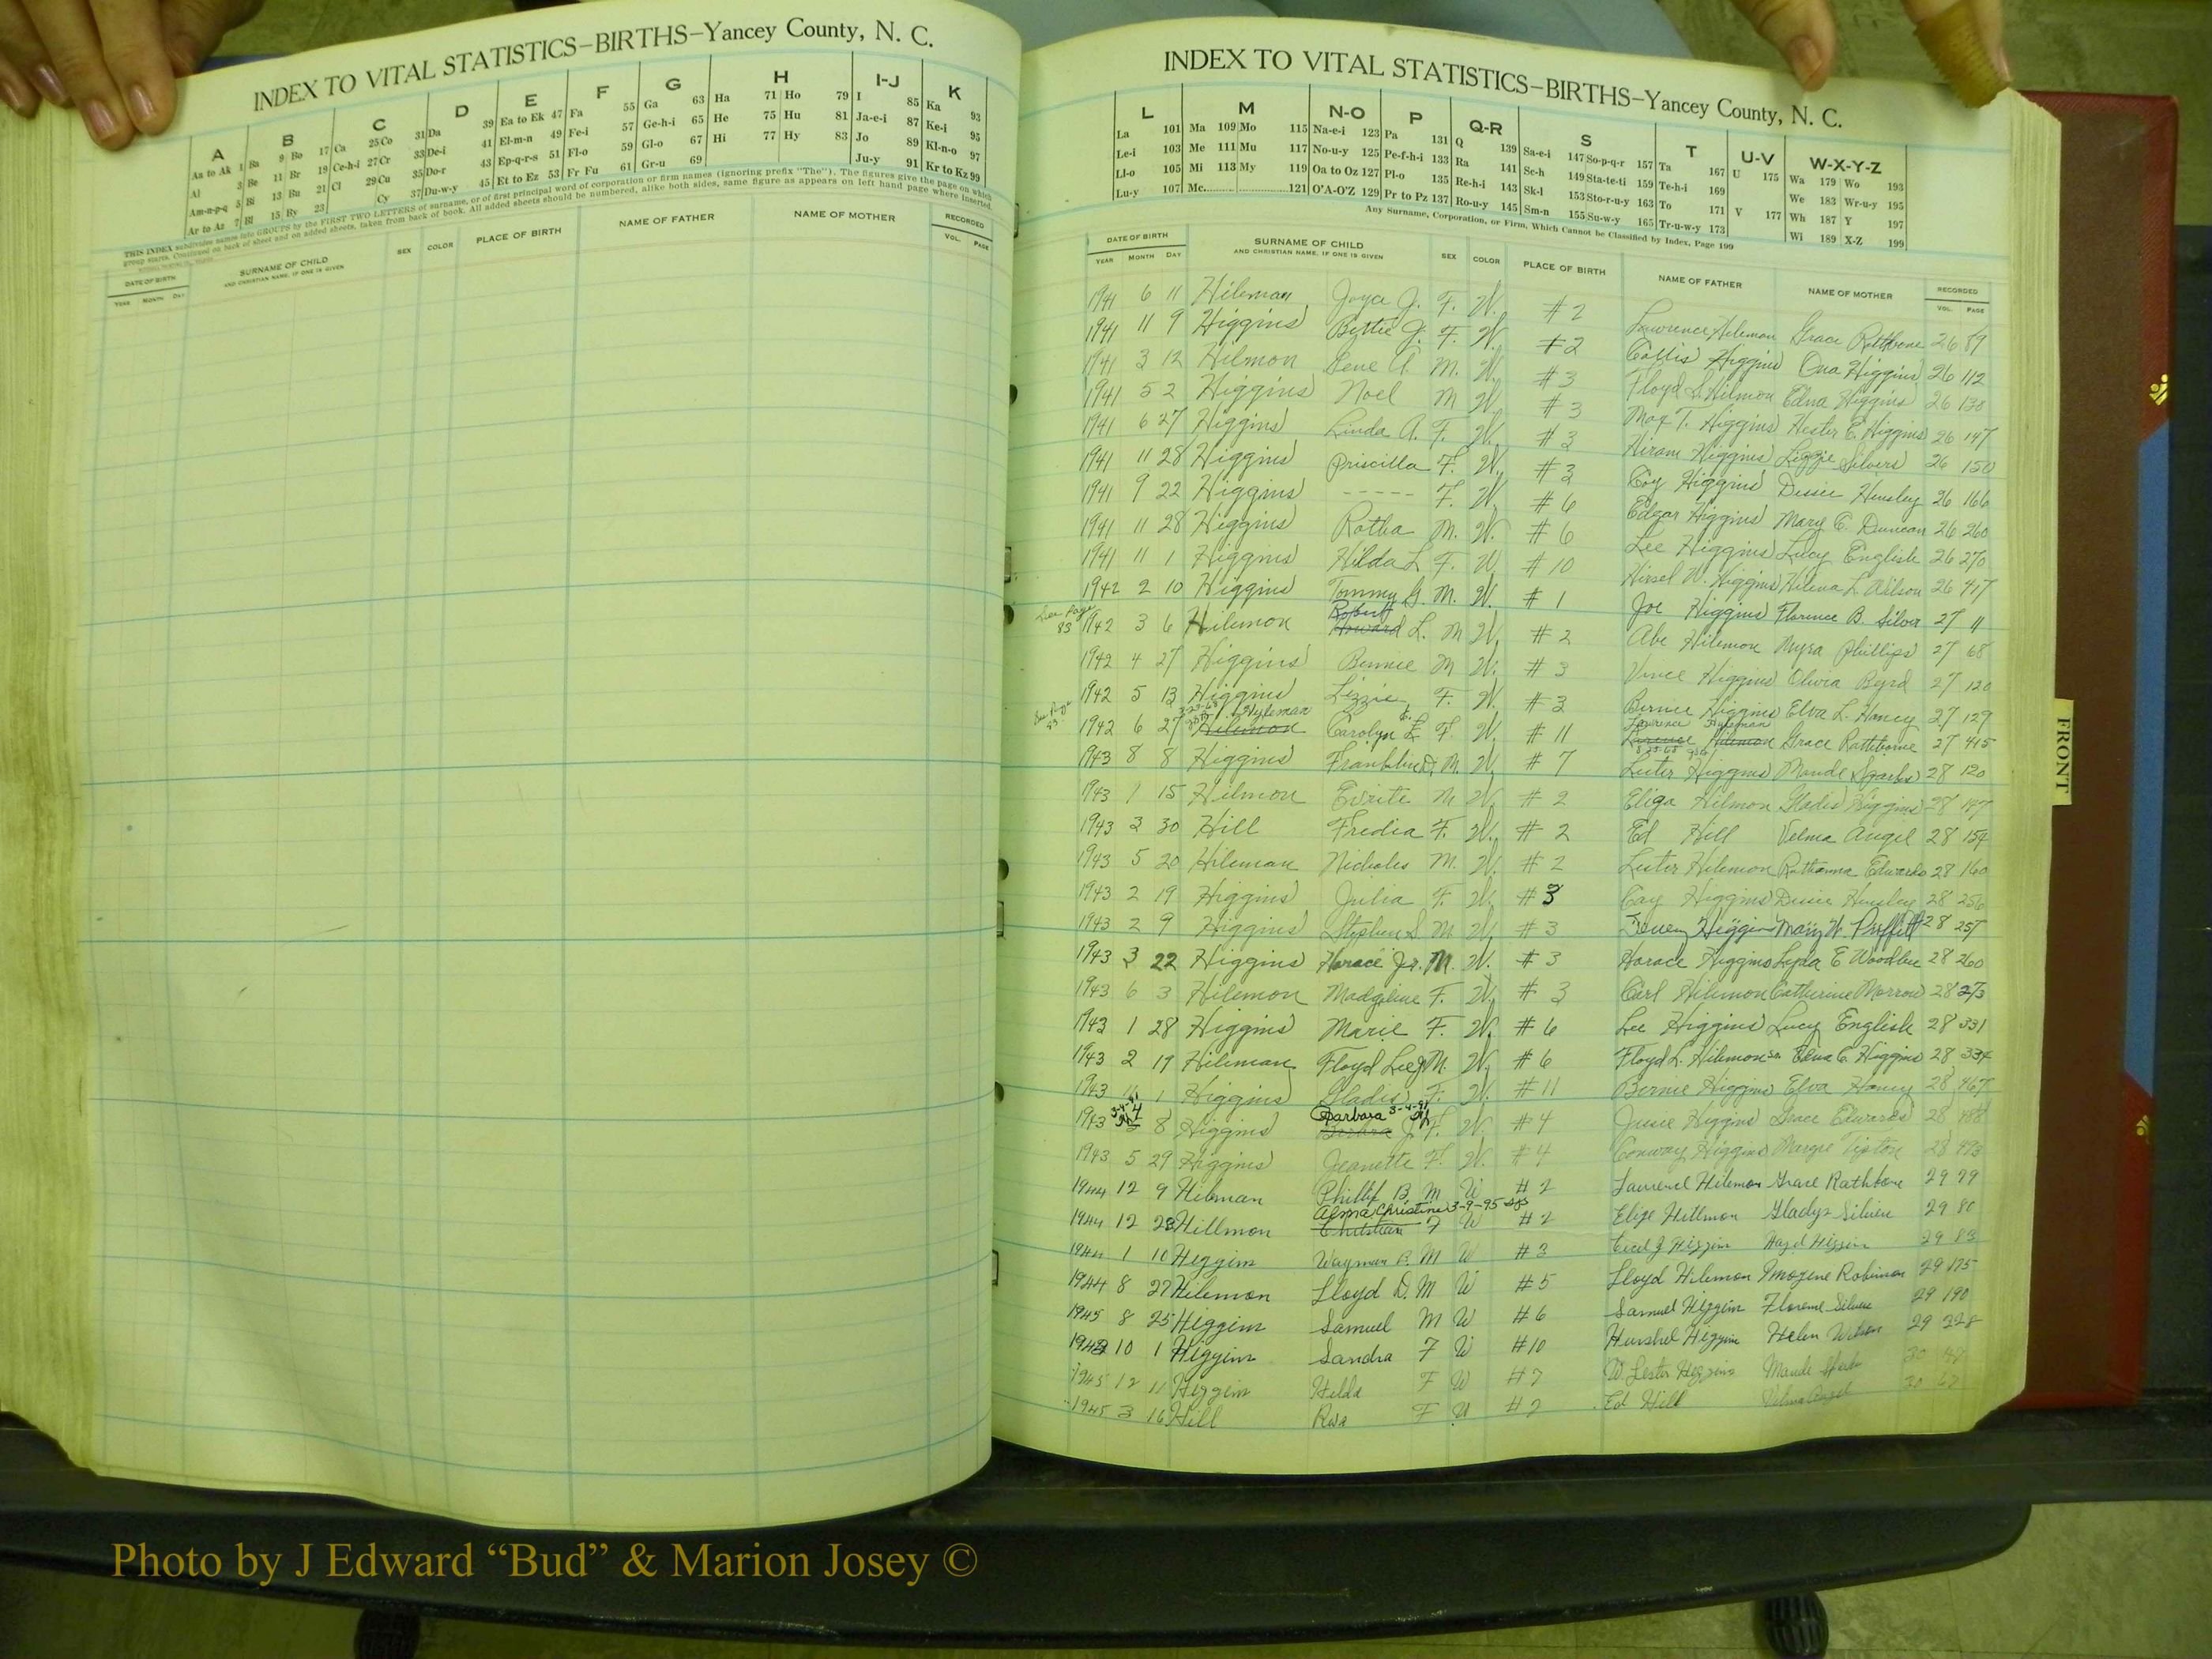 INDEX TO VITAL STATISTICS–BIRTHS–Yancey County, N. C.
A B C D E F G H I-J K
Aa to Ak 1 Ba 9 Bo 17 Ca 25 Co 31 Da 39 Ea to Ek 47 Fa 55 Ga 63 Ha 71 Ho 79 I 85 Ka 93
Al 3 Be 11 Br 19 Ce-h-i 27 Cr 33 De-i 41 El-m-n 49 Fe-i 57 Ge-h-i 65 He 75 Hu 81 Ja-e-i 87 Ke-i 95
Am-n-p-q 5 Bi 13 Bu 21 Cl 29 Cu 35 Do-r 43 Ep-q-r-s 51 Fl-o 59 Gl-o 67 Hi 77 Hy 83 Jo 89 Kl-n-o 97
Ar to Az 7 Bl 15 By 23 Cy 37 Du-w-y 45 Et to Ez 53 Fr Fu 61 Gr-u 69 Ju-y 91 Kr to Kz 99
THIS INDEX subdivides names into GROUPS by the FIRST TWO LETTERS of surname, or of first principal word of corporation or firm names (ignoring prefix "The"). The figures give the page on which
group starts. Continued on back of sheet and on added sheets, taken from back of book. All added sheets should be numbered, alike both sides, same figure as appears on left hand page where inserted.
DATE OF BIRTH SURNAME OF CHILD SEX COLOR PLACE OF BIRTH NAME OF FATHER NAME OF MOTHER RECORDED
YEAR MONTH DAY AND CHRISTIAN NAME, IF ONE IS GIVEN VOL. PAGE
INDEX TO VITAL STATISTICS–BIRTHS–Yancey County, N. C.
L M N-O P Q-R S T U-V W-X-Y-Z
La 101 Ma 109 Mo 115 Na-e-i 123 Pa 131 Q 139 Sa-e-i 147 So-p-q-r 157 Ta 167 U 175 Wa 179 Wo 193
Le-i 103 Me 111 Mu 117 No-u-y 125 Pe-f-h-i 133 Ra 141 Sc-h 149 Sta-te-ti 159 Te-h-i 169 We 183 Wr-u-y 195
Ll-o 105 Mi 113 My 119 Oa to Oz 127 Pl-o 135 Re-h-i 143 Sk-l 153 Sto-r-u-y 163 To 171 V 177 Wh 187 Y 197
Lu-y 107 Mc 121 O'A-O'Z 129 Pr to Pz 137 Ro-u-y 145 Sm-n 155 Su-w-y 165 Tr-u-w-y 173 Wi 189 X-Z 199
Any Surname, Corporation, or Firm, Which Cannot be Classified by Index, Page 199
DATE OF BIRTH SURNAME OF CHILD SEX COLOR PLACE OF BIRTH NAME OF FATHER NAME OF MOTHER RECORDED
YEAR MONTH DAY AND CHRISTIAN NAME, IF ONE IS GIVEN VOL. PAGE
1941 6 11 Hileman Joyce J. F. W. #2 Lawrence Hileman Grace Rathbone 26 89
1941 11 9 Higgins Bettie J. F. W. #2 Collis Higgins Ona Higgins 26 112
1941 3 12 Hilmon Gene A. M. W. #3 Floyd L. Hilmon Edna Higgins 26 138
1941 5 2 Higgins Noel M W. #3 Max T. Higgins Hester E. Higgins 26 147
1941 6 27 Higgins Linda A. F. W. #3 Hiram Higgins Lizzie Silvers 26 150
1941 11 28 Higgins Priscilla F. W. #3 Coy Higgins Dessie Hensley 26 166
1941 9 22 Higgins ----- F. W. #6 Edgar Higgins Mary E. Duncan 26 260
1941 11 28 Higgins Rotha M. W. #6 Lee Higgins Lucy English 26 270
1941 11 1 Higgins Hilda L F. W. #10 Hirsel W. Higgins Helena L. Wilson 26 417
1942 2 10 Higgins Tommy G. M. W. #1 Joe Higgins Florence B. Silver 27 11
See Page 83 1942 3 6 Hilemon Robert Howard L. M W. #2 Abe Hilemon Myra Phillips 27 68
1942 4 27 Higgins Bennie M W. #3 Vince Higgins Olivia Byrd 27 120
1942 5 13 Higgins Lizzie F. W. #3 Bernie Higgins Elva L. Haney 27 129
See Page 83 1942 6 27 Hilemon Hyleman Carolyn E. F. W. #11 Lawrence Hyleman Hilemon Grace Rathbone 27 415
1943 8 8 Higgins Franklin D. M. W. #7 Lester Higgins Maude Sparks 28 120
1943 1 15 Hilmon Evrite M W. #2 Eliga Hilmon Gladis Higgins 28 147
1943 3 30 Hill Fredia F. W. #2 Ed Hill Velma Angel 28 154
1943 5 20 Hileman Nicholes M. W. #2 Lester Hilemon Rothanna Edwards 28 160
1943 2 19 Higgins Julia F. W. #3 Coy Higgins Dessie Hensley 28 256
1943 2 9 Higgins Stephen S M W. #3 Higgins Mary W. Proffitt 28 257
1943 3 22 Higgins Horace Jr. M. W. #3 Horace Higgins Lyda E Woodbee 28 260
1943 6 3 Hilemon Madgeline F. W. #3 Carl Hilemon Catherine Morrow 28 273
1943 1 28 Higgins Marie F. W. #6 Lee Higgins Lucy English 28 331
1943 2 17 Hileman Floyd Lee Jr M. W. #6 Floyd L. Hilemon Sr Edna E. Higgins 28 334
1943 11 1 Higgins Gladis F. W. #11 Bernie Higgins Elva Haney 28 467
1943 3-4-91 4 8 Higgins Barbara 3-4-91 J. F. W. #4 Jessie Higgins Grace Edwards 28 488
1943 5 29 Higgins Jeanette F. W. #4 Conway Higgins Margie Tipton 28 493
1944 12 9 Hileman Phillip B. M W #2 Laurence Hilemon Grace Rathbone 29 79
1944 12 23 Hillmon Alma Christine 3-9-95 Christian F W #2 Elige Hillmon Gladys Silver 29 80
1944 1 10 Higgins Wayman B. M W #3 Cecil J Higgins Hazel Higgins 29 83
1944 8 27 Hilemon Lloyd D. M W #5 Lloyd Hilemon Imogene Robinson 29 175
1945 8 25 Higgins Samuel M W #6 Samuel Higgins Florence Silver 29 190
1943 10 1 Higgins Sandra F W #10 Hershel Higgins Helen Wilson 29 328
1945 12 11 Higgins Hilda F W #7 W. Lester Higgins Maude Sparks 30
1945 3 16 Hill Rea F W #2 Ed Hill Velma Angel 30
FRONT
Photo by J Edward “Bud” & Marion Josey ©